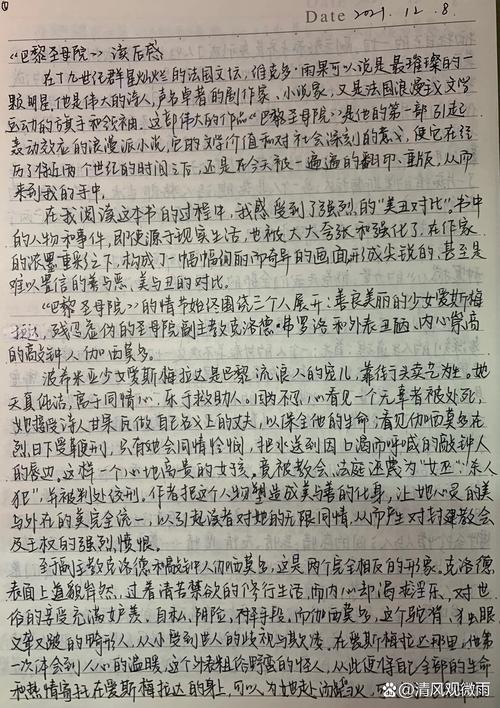 ①
Date 2021.12.8.
《巴黎圣母院》读后感
在十九世纪群星灿烂的法国文坛，维克多·雨果可以说是最璀璨的一
颗明星，他是伟大的诗人，声名卓著的剧作家、小说家，又是法国浪漫主义文学
运动的旗手和领袖。这部伟大的作品《巴黎圣母院》是他的第一部引起
轰动效应的浪漫派小说，它的文学价值和对社会深刻的意义，使它在经
历了将近两个世纪的时间之后，还是在今天被一遍遍的翻印、重版，从而
来到我的手中。
在我阅读这本书的过程中，我感受到了强烈的“美丑对比”。书中
的人物和事件，即使源于现实生活，也被大大夸张和强化了，在作家
的浓墨重彩之下，构成了一幅幅绚丽而奇异的画面，形成尖锐的、甚至是
难以置信的善与恶、美与丑的对比。
《巴黎圣母院》的情节始终围绕三个人展开：善良美丽的少女爱斯梅
拉达，残忍虚伪的圣母院副主教克洛德·弗罗洛和外表丑陋、内心崇高
的敲钟人伽西莫多。
波希米亚少女爱斯梅拉达是巴黎流浪人的宠儿，靠街头卖艺为生。她
天真纯洁，富于同情心，乐于救助人。因为不忍心看见一个无辜者被处死，
她接受诗人甘果瓦做自己名义上的丈夫，以保全他的生命；看见伽西莫多在
烈日下受鞭刑，只有她会同情怜悯，把水送到因口渴而呼喊的敲钟人
的唇边。这样一个心地高贵的女孩，竟被教会、法庭诬蔑为“女巫”“杀人
犯”，并被判处绞刑。作者把这个人物塑造成美与善的化身，让她心灵的美
与外在的美完全统一，以引起读者对她的无限同情，从而产生对封建教会
及王权的强烈愤恨。
至于副主教克洛德和敲钟人伽西莫多，这是两个完全相反的形象。克洛德
表面上道貌岸然，过着清苦禁欲的修行生活，而内心却渴求淫乐，对世
俗的享受充满妒羡。自私、阴险、不择手段。而伽西莫多，这个驼背、独眼
又聋又跛的畸形人，从小受到世人的歧视与欺凌。在爱斯梅拉达那里，他第
一次体会到人心的温暖，这个外表粗俗野蛮的怪人，从此便将自己全部的生命
和热情寄托在爱斯梅拉达的身上，可以为她赴汤蹈火，
百家号/清风观微雨